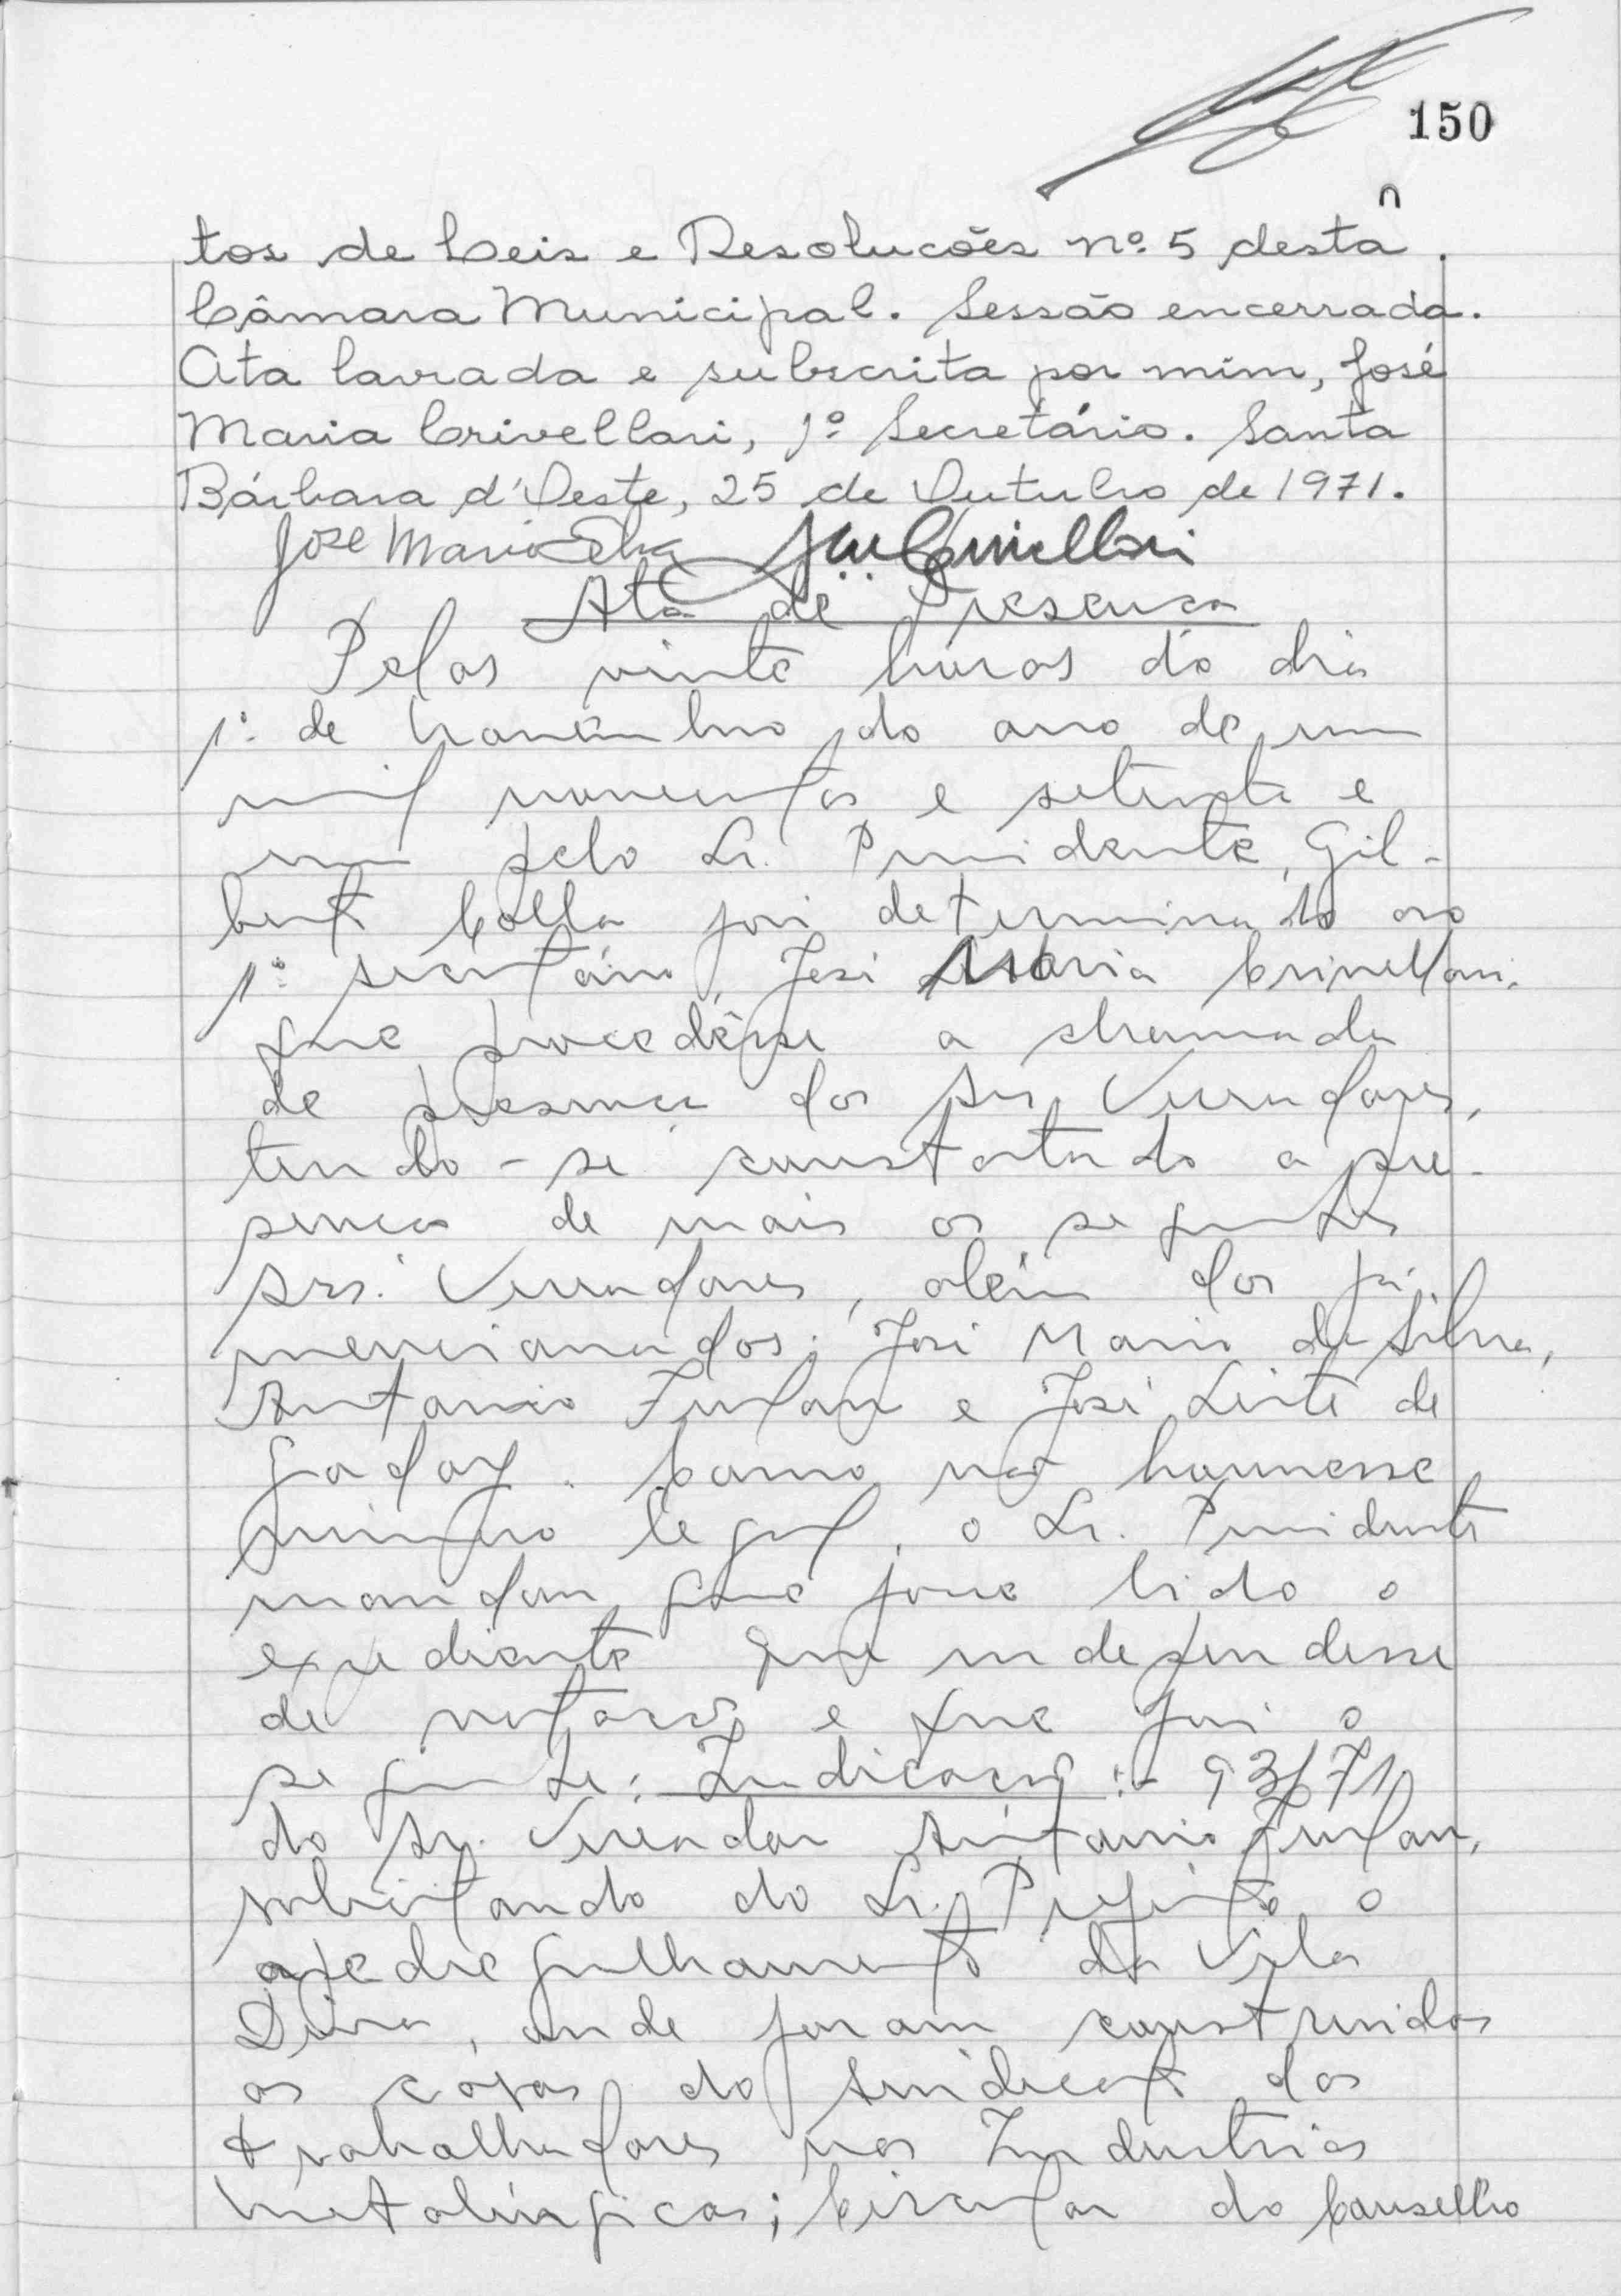 150
tos de Leis e Resoluções nº 5 desta
Câmara Municipal. Sessão encerrada.
Ata lavrada e subscrita por mim, José
Maria Crivellari, 1º Secretário. Santa
Bárbara d'Oeste, 25 de Outubro de 1971.
José Maria Crivellari
Ata de Presença
Pelas vinte horas do dia
1º de novembro do ano de um
mil novecentos e setenta e
um pelo Sr. Presidente, Gil-
bert Colla foi determinado ao
1º secretário, José Maria Crivellari,
que procedêsse a chamada
de presença dos Srs. Vereadores,
tendo-se constatado a pre-
sença de mais os seguintes
srs. Vereadores, além dos já
mencionados: José Mario da Silva,
Antonio Furlan e José Leite de
Godoy. Como não houvesse
número legal, o Sr. Presidente
mandou que fosse lido o
expediente que independesse
de votação e que foi o
seguinte: Indicação:- 93/71
do Sr. Vereador Antonio Furlan,
solicitando do Sr. Prefeito o
apedregulhamento da Vila
Diva, onde foram construidas
as casas do sindicato dos
trabalhadores nas Industrias
Metalúrgicas; Circular do Conselho